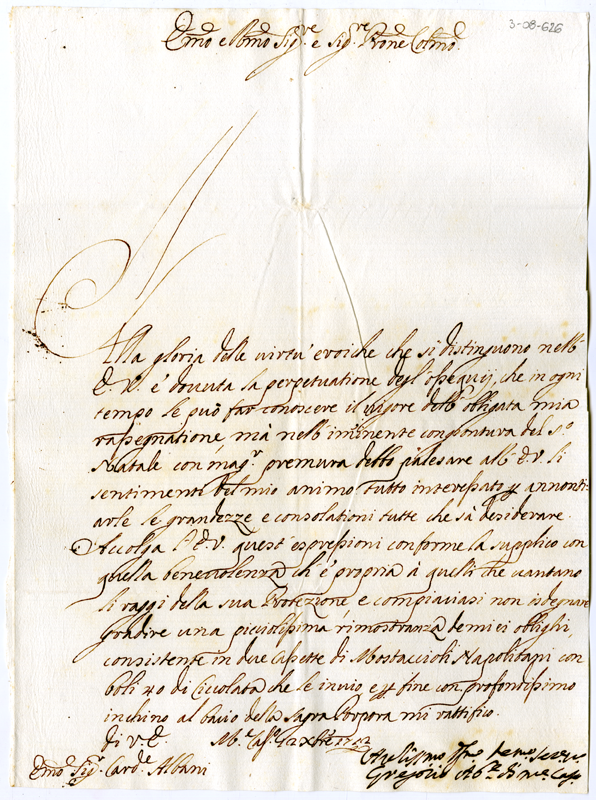 3-08-626
Emo e Rmo Sigre e Sigre Prone Colmo
Alla gloria delle virtù eroiche che si distinguono nell'
E.V. è dovuta la perpetuatione degl'ossequij, che in ogni
tempo le può far conoscere il vigore dell'obligata mia
rassegnatione, mà nell'iminente conjontura del So
Natale con magr premura debbo palesare all'E.V. li
sentimenti del mio animo tutto interessato p annonti-
arle le grandezze e consolationi tutte che sà desiderare.
Accolga l'E.V. quest'espressioni conforme la supplico con
quella benevolenza ch'è propria à quelli che vantano
li raggi della sua Protezione e compiaciasi non isdegnare
gradire una picciolissima rimostranza de miei oblighi,
consistente in due Casette di Mostaccioli Napolitani con
boli 40 di Ciccolata che le invio e p fine con profondissimo
inchino al bacio della Sagra Porpora mi rattifico.
di V.E.
Emo Sigr Cardle Albani
Gregorio Abte di Mte Caso